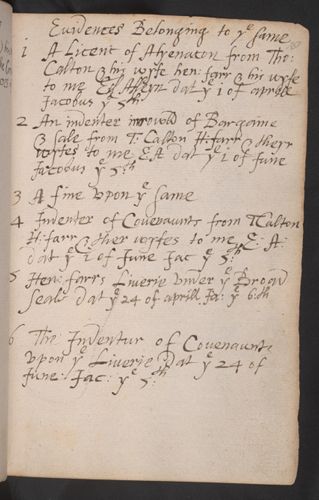 Evidences Belonging to yᵉ same
1 A Licent of Alyenacon from Tho:
Calton & his wyfe hen: farr & his wyfe
to me Ed Alleyn dat yᵉ 1 of aprill
Jacobus yᵉ 5ᵗʰ
2 An indenter inrowld of Bargaine
& sale from T: Calton H: farr & theyr
wyfes to me E A dat yᵉ 1 of June
Jacobus yᵉ 5ᵗʰ
3 A fine vpon yᵉ same
4 Indenter of Covenaunts from T Calton
H: farr & ther wyfes to me E: A:
dat yᵉ 1 of June Jac yᵉ 5:ᵗʰ
5 Hen: farrs Liverie vnder yᵉ Broad
seale dat yᵉ 24 of aprill Ja: yᵉ 6:th
6 The Indentur of Covenaunts
vpon yᵉ Liverie Dat yᵉ 24 of
June: Jac: yᵉ 5:ᵗʰ